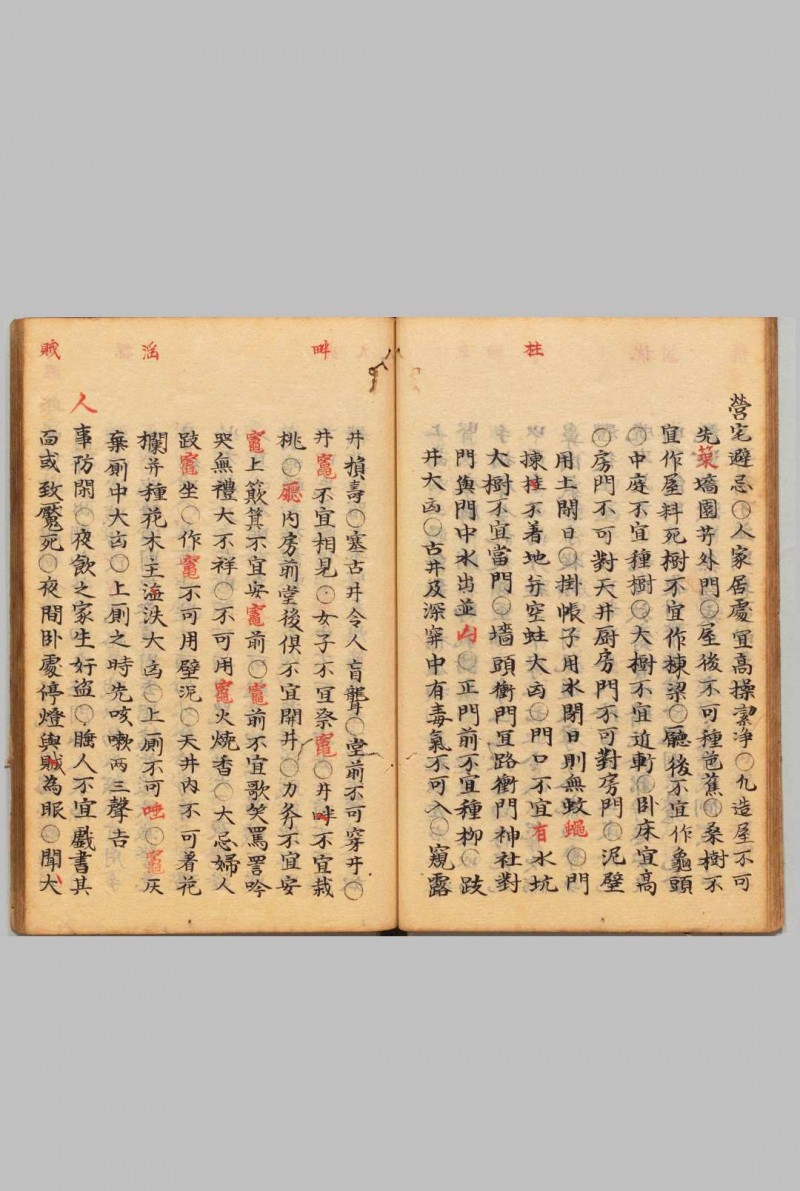 營宅避忌〇人家居處宜高操潔净〇九造屋不可
先築墻園并外門〇屋後不可種芭蕉〇桑樹不
宜作屋料死樹不宜作棟梁〇廳後不宜作龜頭
〇中庭不宜種樹〇大樹不宜近軒〇卧床宜高
〇房門不可對天井厨房門不可對房門〇泥壁
用土閉日〇掛帳子用水閉日則無蚊蠅〇門
柱
揀柱不着地并空蛀大凶〇門口不宜有水坑
大樹不宜當門〇墻頭衝門冝路衝門神社對
門與門中水出並凶〇正門前不宜種柳〇跂
井大凶〇古井及深穽中有毒氣不可入〇窺露
井損壽〇塞古井令人盲聾〇堂前不可穿井〇
畔
井竈不宜相見〇女子不冝祭竈〇井畔不宜栽
桃〇廳内房前堂後俱不宜開井〇刀斧不宜安
竈上簸箕不宜安竈前〇竈前不宜歌笑罵詈吟
哭無禮大不祥〇不可用竈火燒香〇大忌婦人
跂竈坐〇作竈不可用壁泥〇天井内不可着花
淫
欄并種花木主淫泆大凶〇上厠不可唾〇竈灰
棄厠中大凶〇上厠之時先咳嗽两三聲吉
人事防閑〇夜飲之家生好盗〇睡人不宜戲書其
賊
面或致魘死〇夜間卧處停燈與賊為眼〇聞犬